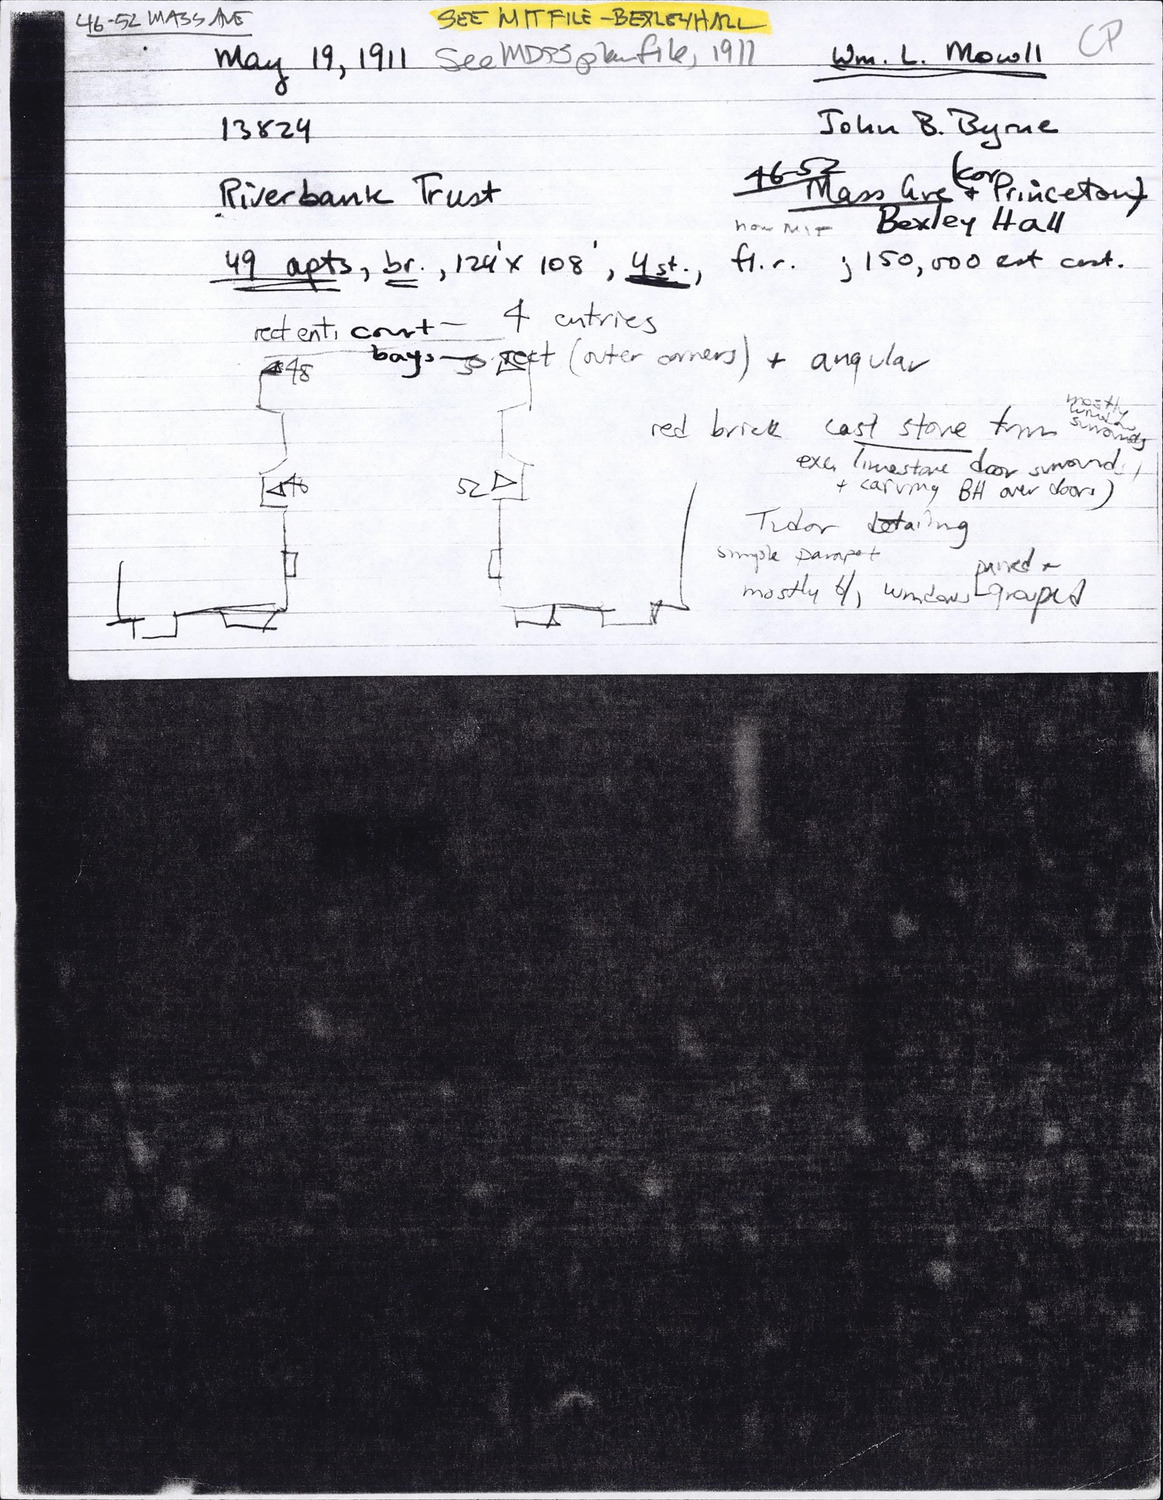 46-52 MASS AVE SEE MIT FILE - BEXLEY HALL
May 19, 1911 See MDPS plan file, 1911 Wm. L. Mowll CP
13824 John B. Byrne
Riverbank Trust 46-52 Mass Ave (cor + Princeton)
now MIT Bexley Hall
49 apts, br., 124' x 108', 4 st., fl. r. ; 150,000 est cost.
rect ent, court — 4 entries
bays — rect (outer corners) + angular
48 50
red brick cast stone trim mostly window surrounds
exc. limestone door surround,
+ carving BH over doors)
46 52
Tudor detailing
simple parapet
mostly 6/1 windows paired + grouped